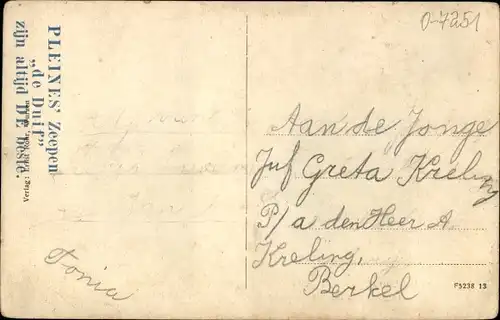 0-7251
PLEINES' Zeepen
„de Duif"
zijn altijd DE beste.
Verlag:
Tonia
Aan de Jonge
Juf Greta Kreling
P/a den Heer A
Kreling,
Berkel
F5238 13